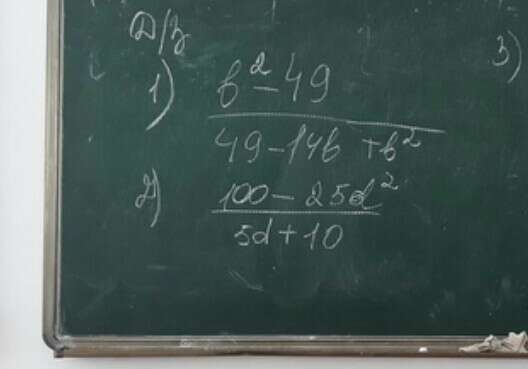 Д/з
1) b² - 49
49 - 14b + b²
2) 100 - 25d²
5d + 10
3)